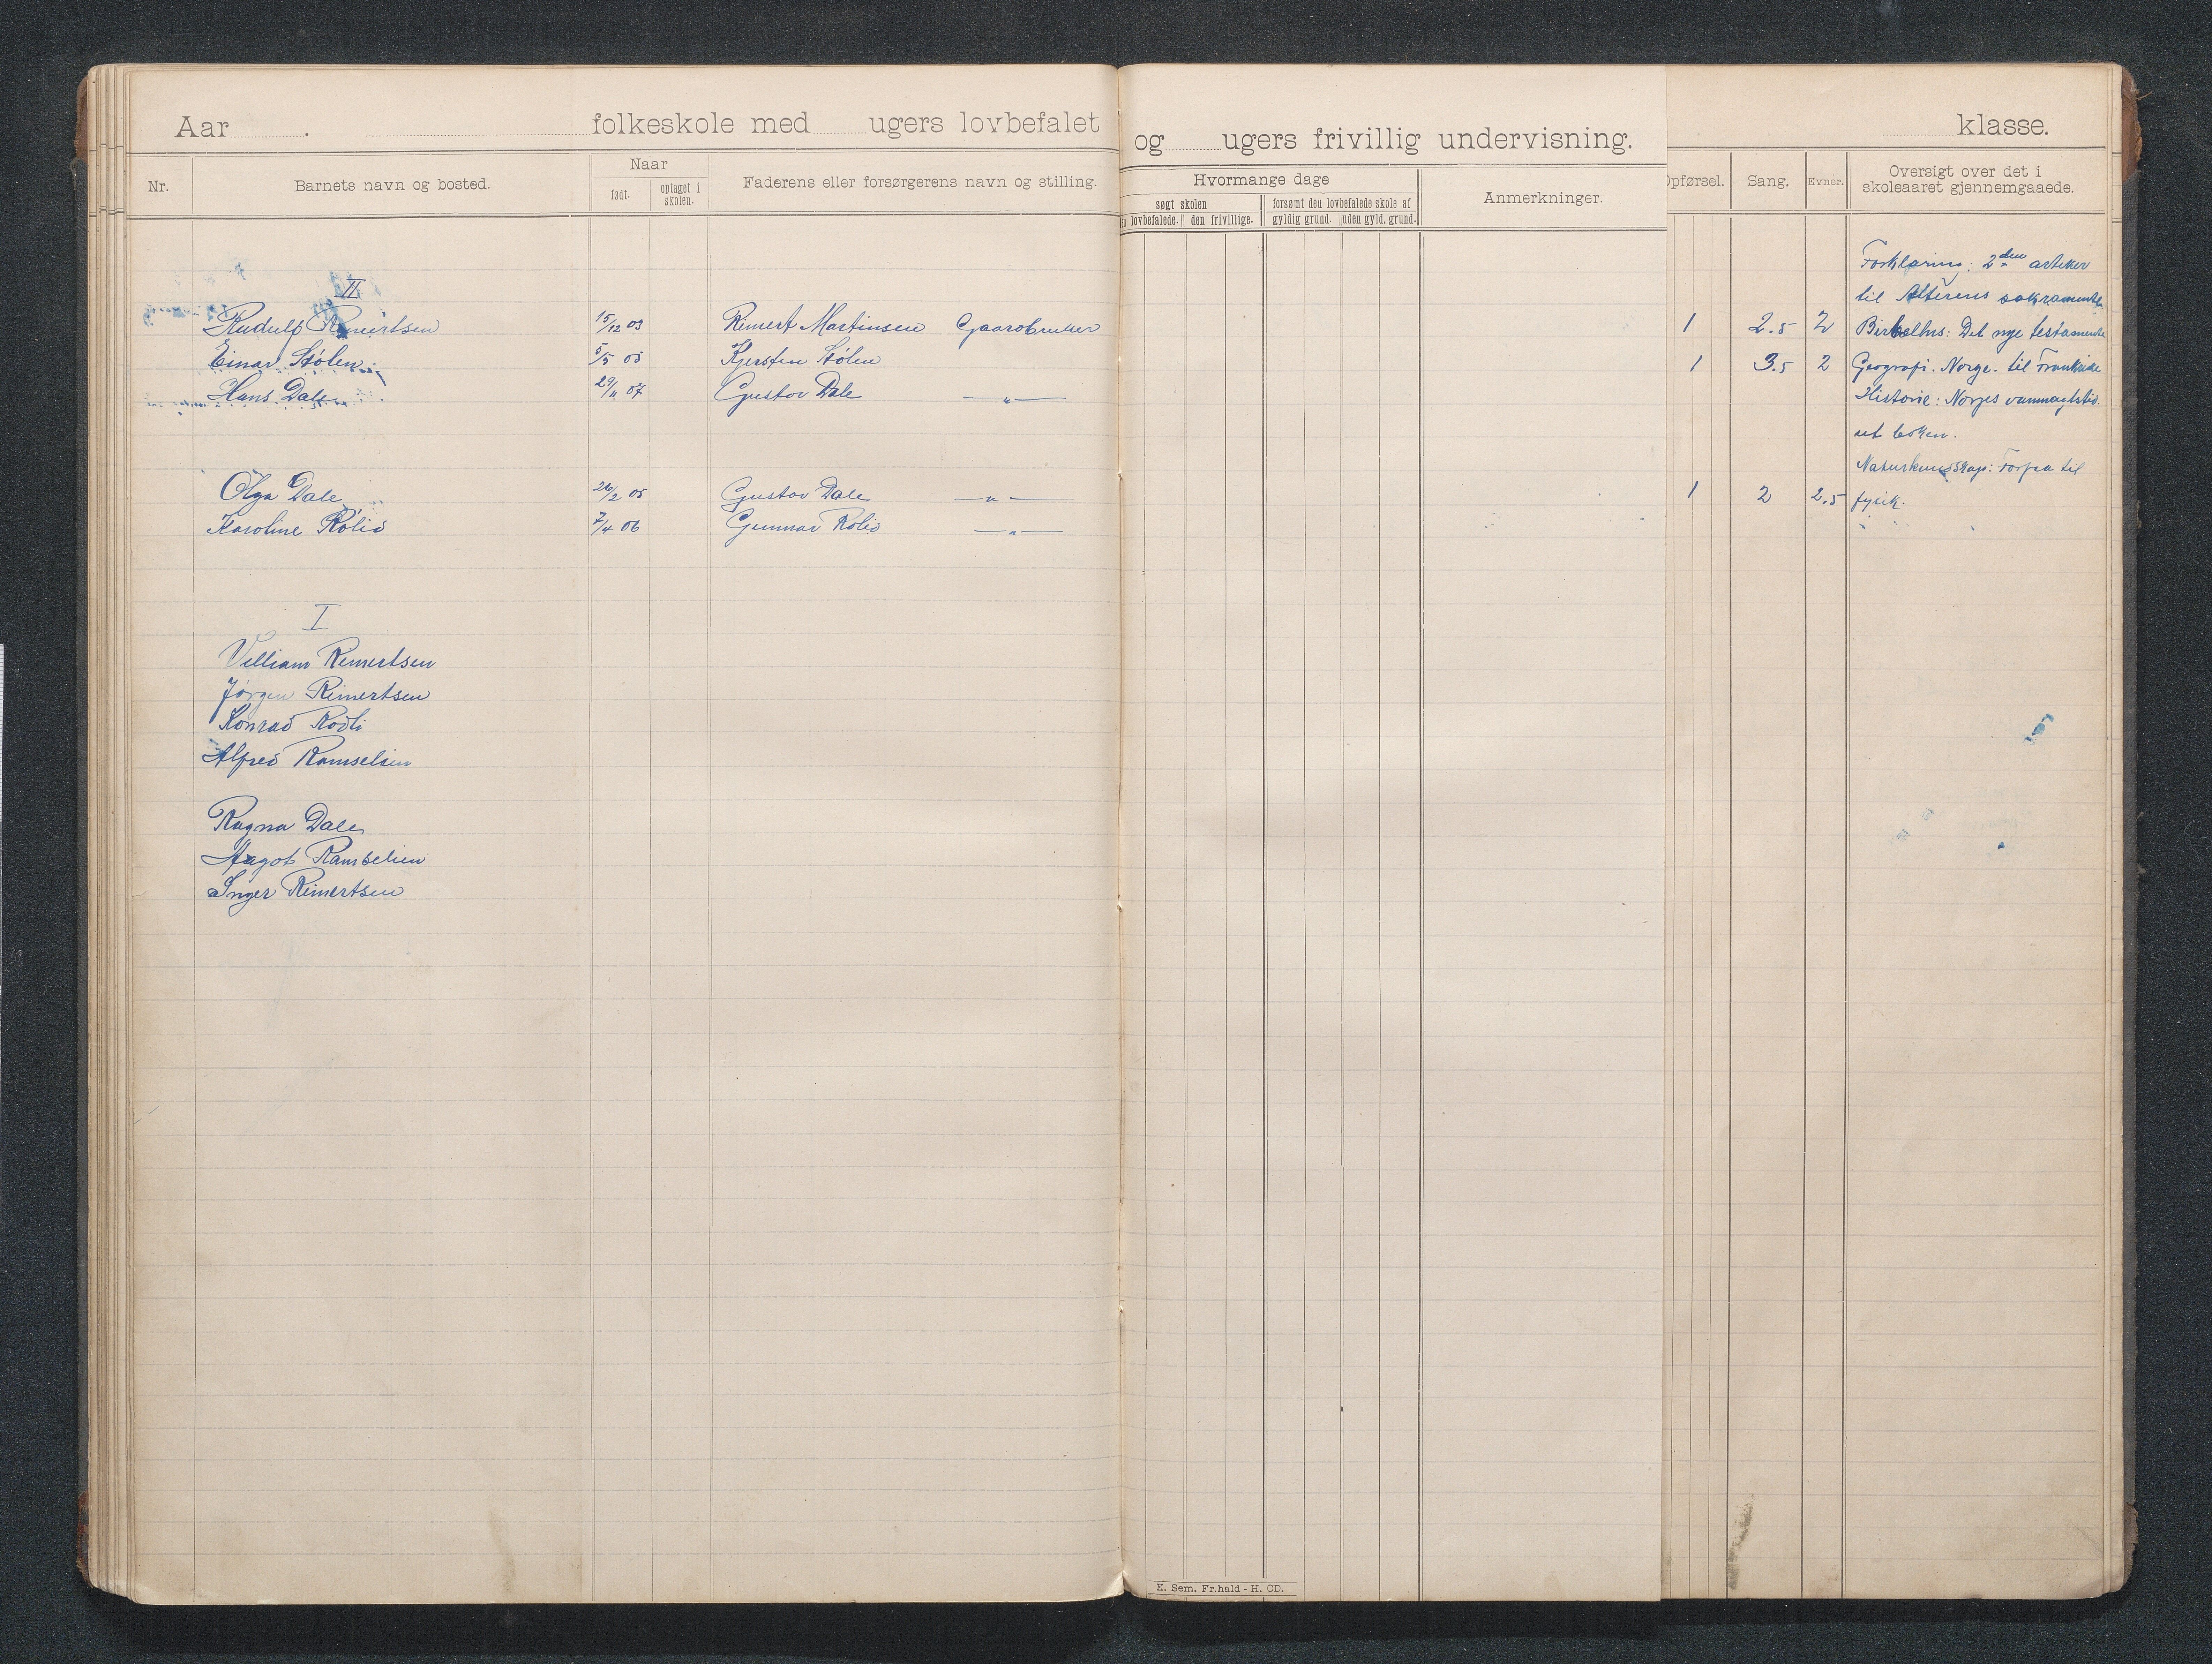 Aar . folkeskole med ugers lovbefalet
og ugers frivillig undervisning.
klasse.
Nr. Barnets navn og bosted. Naar født. optaget i skolen. Faderens eller forsørgerens navn og stilling.
Hvormange dage
søgt skolen forsømt den lovbefalede skole af
lovbefalede. den frivillige. gyldig grund. uden gyld. grund.
Anmerkninger.
Opførsel. Sang. Evner. Oversigt over det i
skoleaaret gjennemgaaede.
II
Rudulf Reinertsen 15/12 03 Reinert Martinsen Gaardbruker 1 2.5 2
Einar Stølen 5/5 05 Kjersten Stølen 1 3.5 2
Hans Dale 29/11 07 Gustav Dale — " —
Olga Dale 26/2 05 Gustav Dale — " — 1 2 2.5
Karoline Rølid 7/4 06 Gunnar Rølid — " —
I
Villiam Reinertsen
Jørgen Reinertsen
Konrad Rødli
Alfred Ramselien
Ragna Dale
Aagot Ramselien
Inger Reinertsen
Forklaring: 2den artikel
til Alterens sakramente
Det nye testamente
Geografi. Norge. til Frankrike
Historie: Norges vanmagtstid.
ut boken.
Naturkundskap: Forfra til
fysik.
E. Sem. Fr.hald - H. CD.